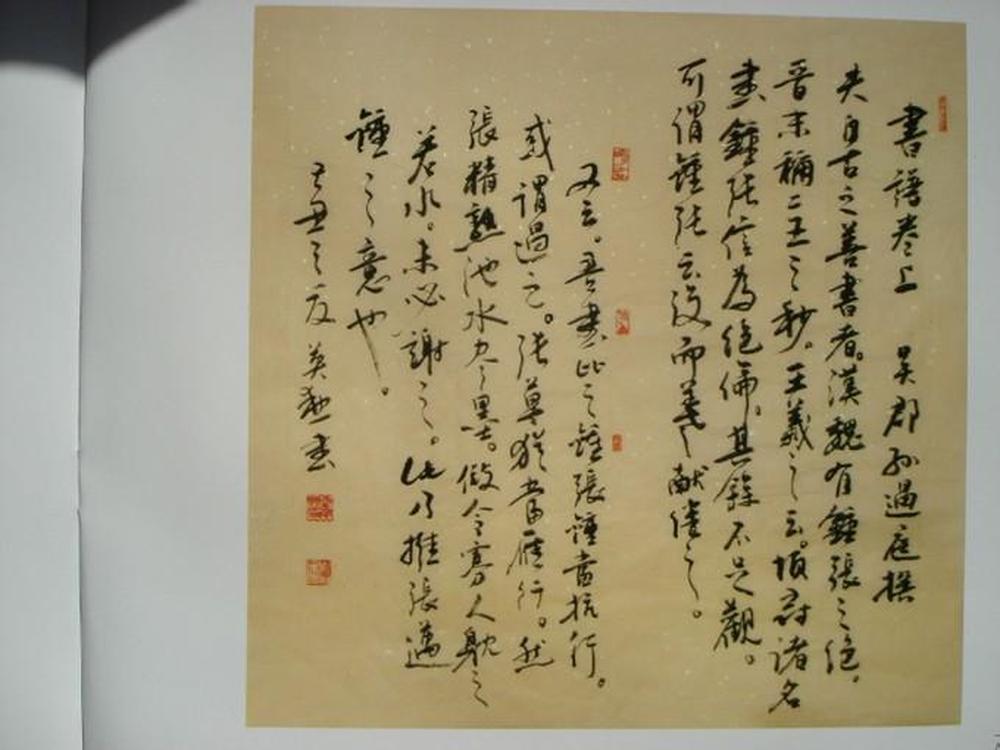 書譜卷上 吴郡孙過庭撰
夫自古之善書者。漢魏有鍾張之絕。
晋末稱二王之妙。王羲之云。頃尋諸名
書鍾張信為絕倫。其餘不足觀。
可謂鍾张云没而羲献繼之。
又云。吾書比之鍾張鍾當抗行。
或謂過之。张草猶當雁行。然
張精熟池水尽墨。假令寡人耽之
若此。未必謝之。此乃推張邁
鍾之意也。